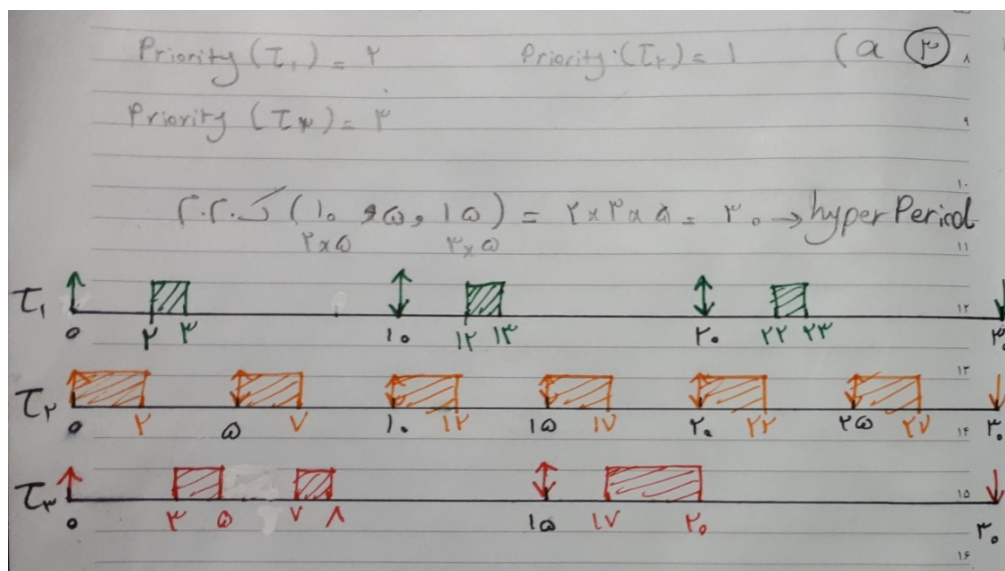 Priority (τ۱) = ۲ Priority (τ۲) = ۱ (a ۳
Priority (τ۳) = ۳
ک.م.م (۱۰ و ۵ و ۱۵) = ۲×۳×۵ = ۳۰ → hyper Period
۲×۵ ۳×۵
τ۱
۰ ۲ ۳ ۱۰ ۱۲ ۱۳ ۲۰ ۲۲ ۲۳ ۳۰
τ۲
۰ ۲ ۵ ۷ ۱۰ ۱۲ ۱۵ ۱۷ ۲۰ ۲۲ ۲۵ ۲۷ ۳۰
τ۳
۰ ۳ ۵ ۷ ۸ ۱۵ ۱۷ ۲۰ ۳۰
۸
۹
۱۰
۱۱
۱۲
۱۳
۱۴
۱۵
۱۶